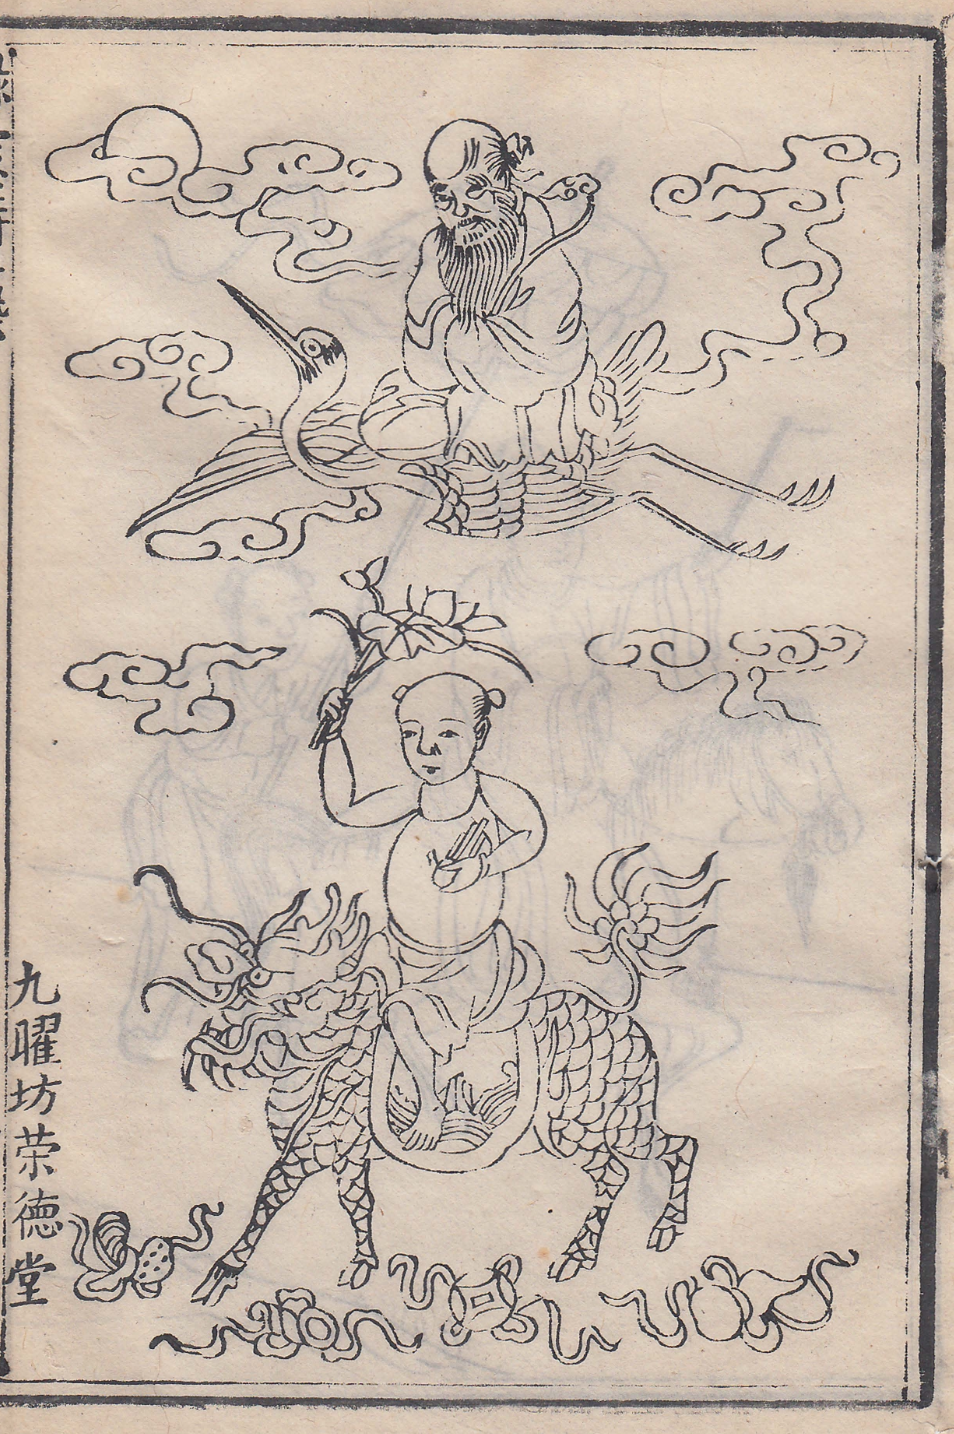 九曜坊荣德堂